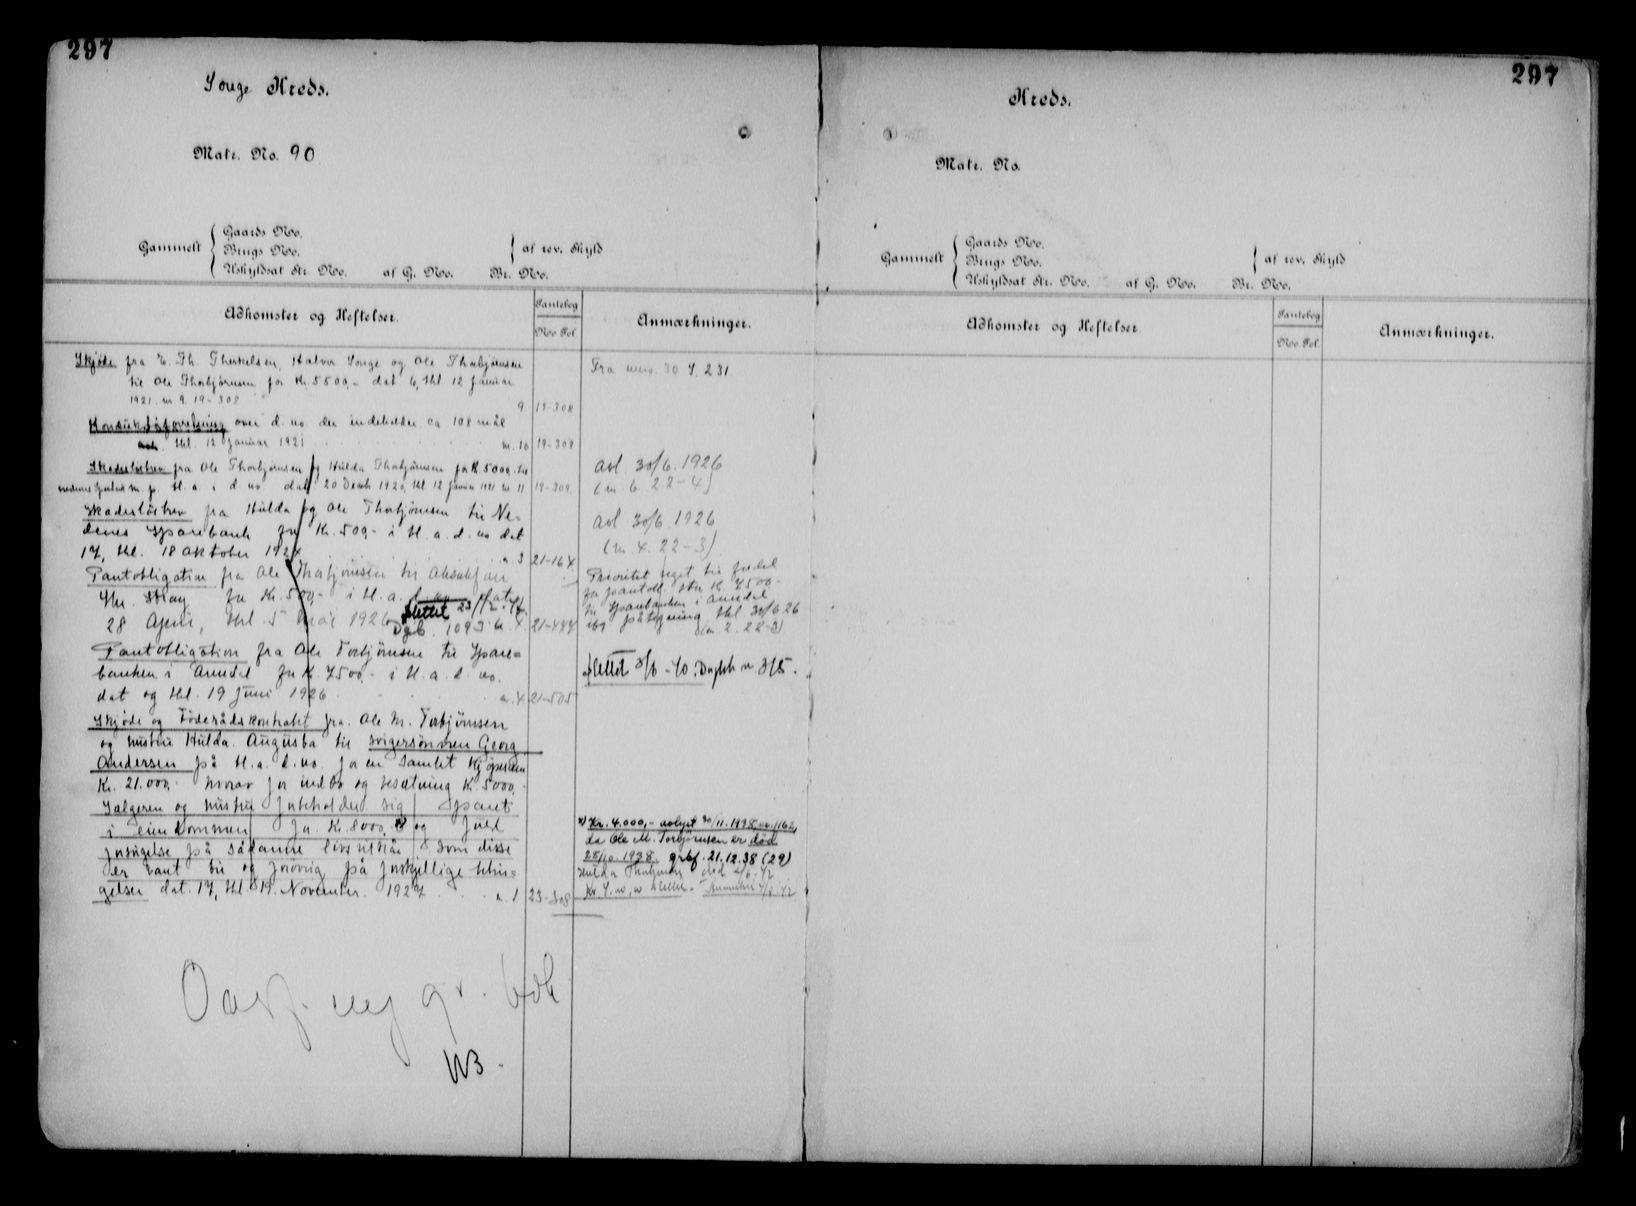 297
Songe Kreds.
Matr. No. 90
Gammelt
Gaards No.
Brugs No.
Uskyldsat Str. No. af G. No. Br. No.
af rev. Skyld
Adkomster og Heftelser.
Pantebog
No. Fol.
Anmærkninger.
Skjöde fra Th. Therkelsen, Halvor Songe og Ole Thorbjörnsen
til Ole Thorbjörnsen for Kr. 5500,- dat 6, thl 12 Januar
1921. nr. 9. 19-308
9 19-308
Fra 30 S. 231
over d. no. der indeholder ca 108 mål
thl. 12 Januar 1921 nr. 10 19-308
Skadeslösbrev fra Ole Thorbjörnsen og Hulda Thorbjörnsen for Kr. 5000,- til
i d. no dat 20 Decbr 1920, thl 12 Januar 1921 nr. 11 19-309.
avl. 30/6. 1926
(nr. 6. 22-4)
Skadeslösbrev fra Hulda og Ole Thorbjörnsen til Ne=
denes Sparebank for Kr. 500,- i H. a. d. no dat
17, thl. 18 Oktober 1924 n. 3 21-164
avl 30/6. 1926
(nr. 4. 22-3)
Pantobligation fra Ole Thorbjörnsen til
for Kr. 500,- i H. a. d. no dat
28 April, thl. 5 Mai 1926 n. 4 21-444
Slettet 23/12-47
Dgb. 1093
Prioritet veget til fordel
for pantobl. stor Kr. 7500-
til Sparebanken i Arendal
påtegning thl. 30/6 26
(n. 2. 22-3)
Pantobligation fra Ole Torbjörnsen til Spare=
banken i Arendal for Kr. 7500,- i H. a. d. no.
dat og thl. 19 Juni 1926. n. 4 21-505
slettet 3/6-40. Dagbk nr 315.
Skjöde og Föderådskontrakt fra Ole M. Torbjörnsen
og hustru Hulda Augusta til svigersönnen Georg
Andersen på H. a. d. no. for en samlet kjöpesum
Kr. 21.000,- hvorav for indbo og besætning Kr. 5000,-
Sælgeren og hustru forbeholder sig pant
i eiendommen for Kr. 8000, x) og fuld
forsörgelse på sådanne livsvilkår som disse
er vant til og forövrig på forskjellige betin=
gelser dat. 17, thl 19. November 1927 n. 1 23-308
x) Kr. 4.000,- avlyst 30/11. 1938, nr. 1162,
da Ole M. Torbjörnsen er död
28/10. 1938. grbf. 21.12.38 (29)
Hulda Thorbjörnsen död
Overf. ny gr. bok
WB.
297
Kreds.
Matr. No.
Gammelt
Gaards No.
Brugs No.
Uskyldsat Str. No. af G. No. Br. No.
af rev. Skyld
Adkomster og Heftelser.
Pantebog
No. Fol.
Anmærkninger.